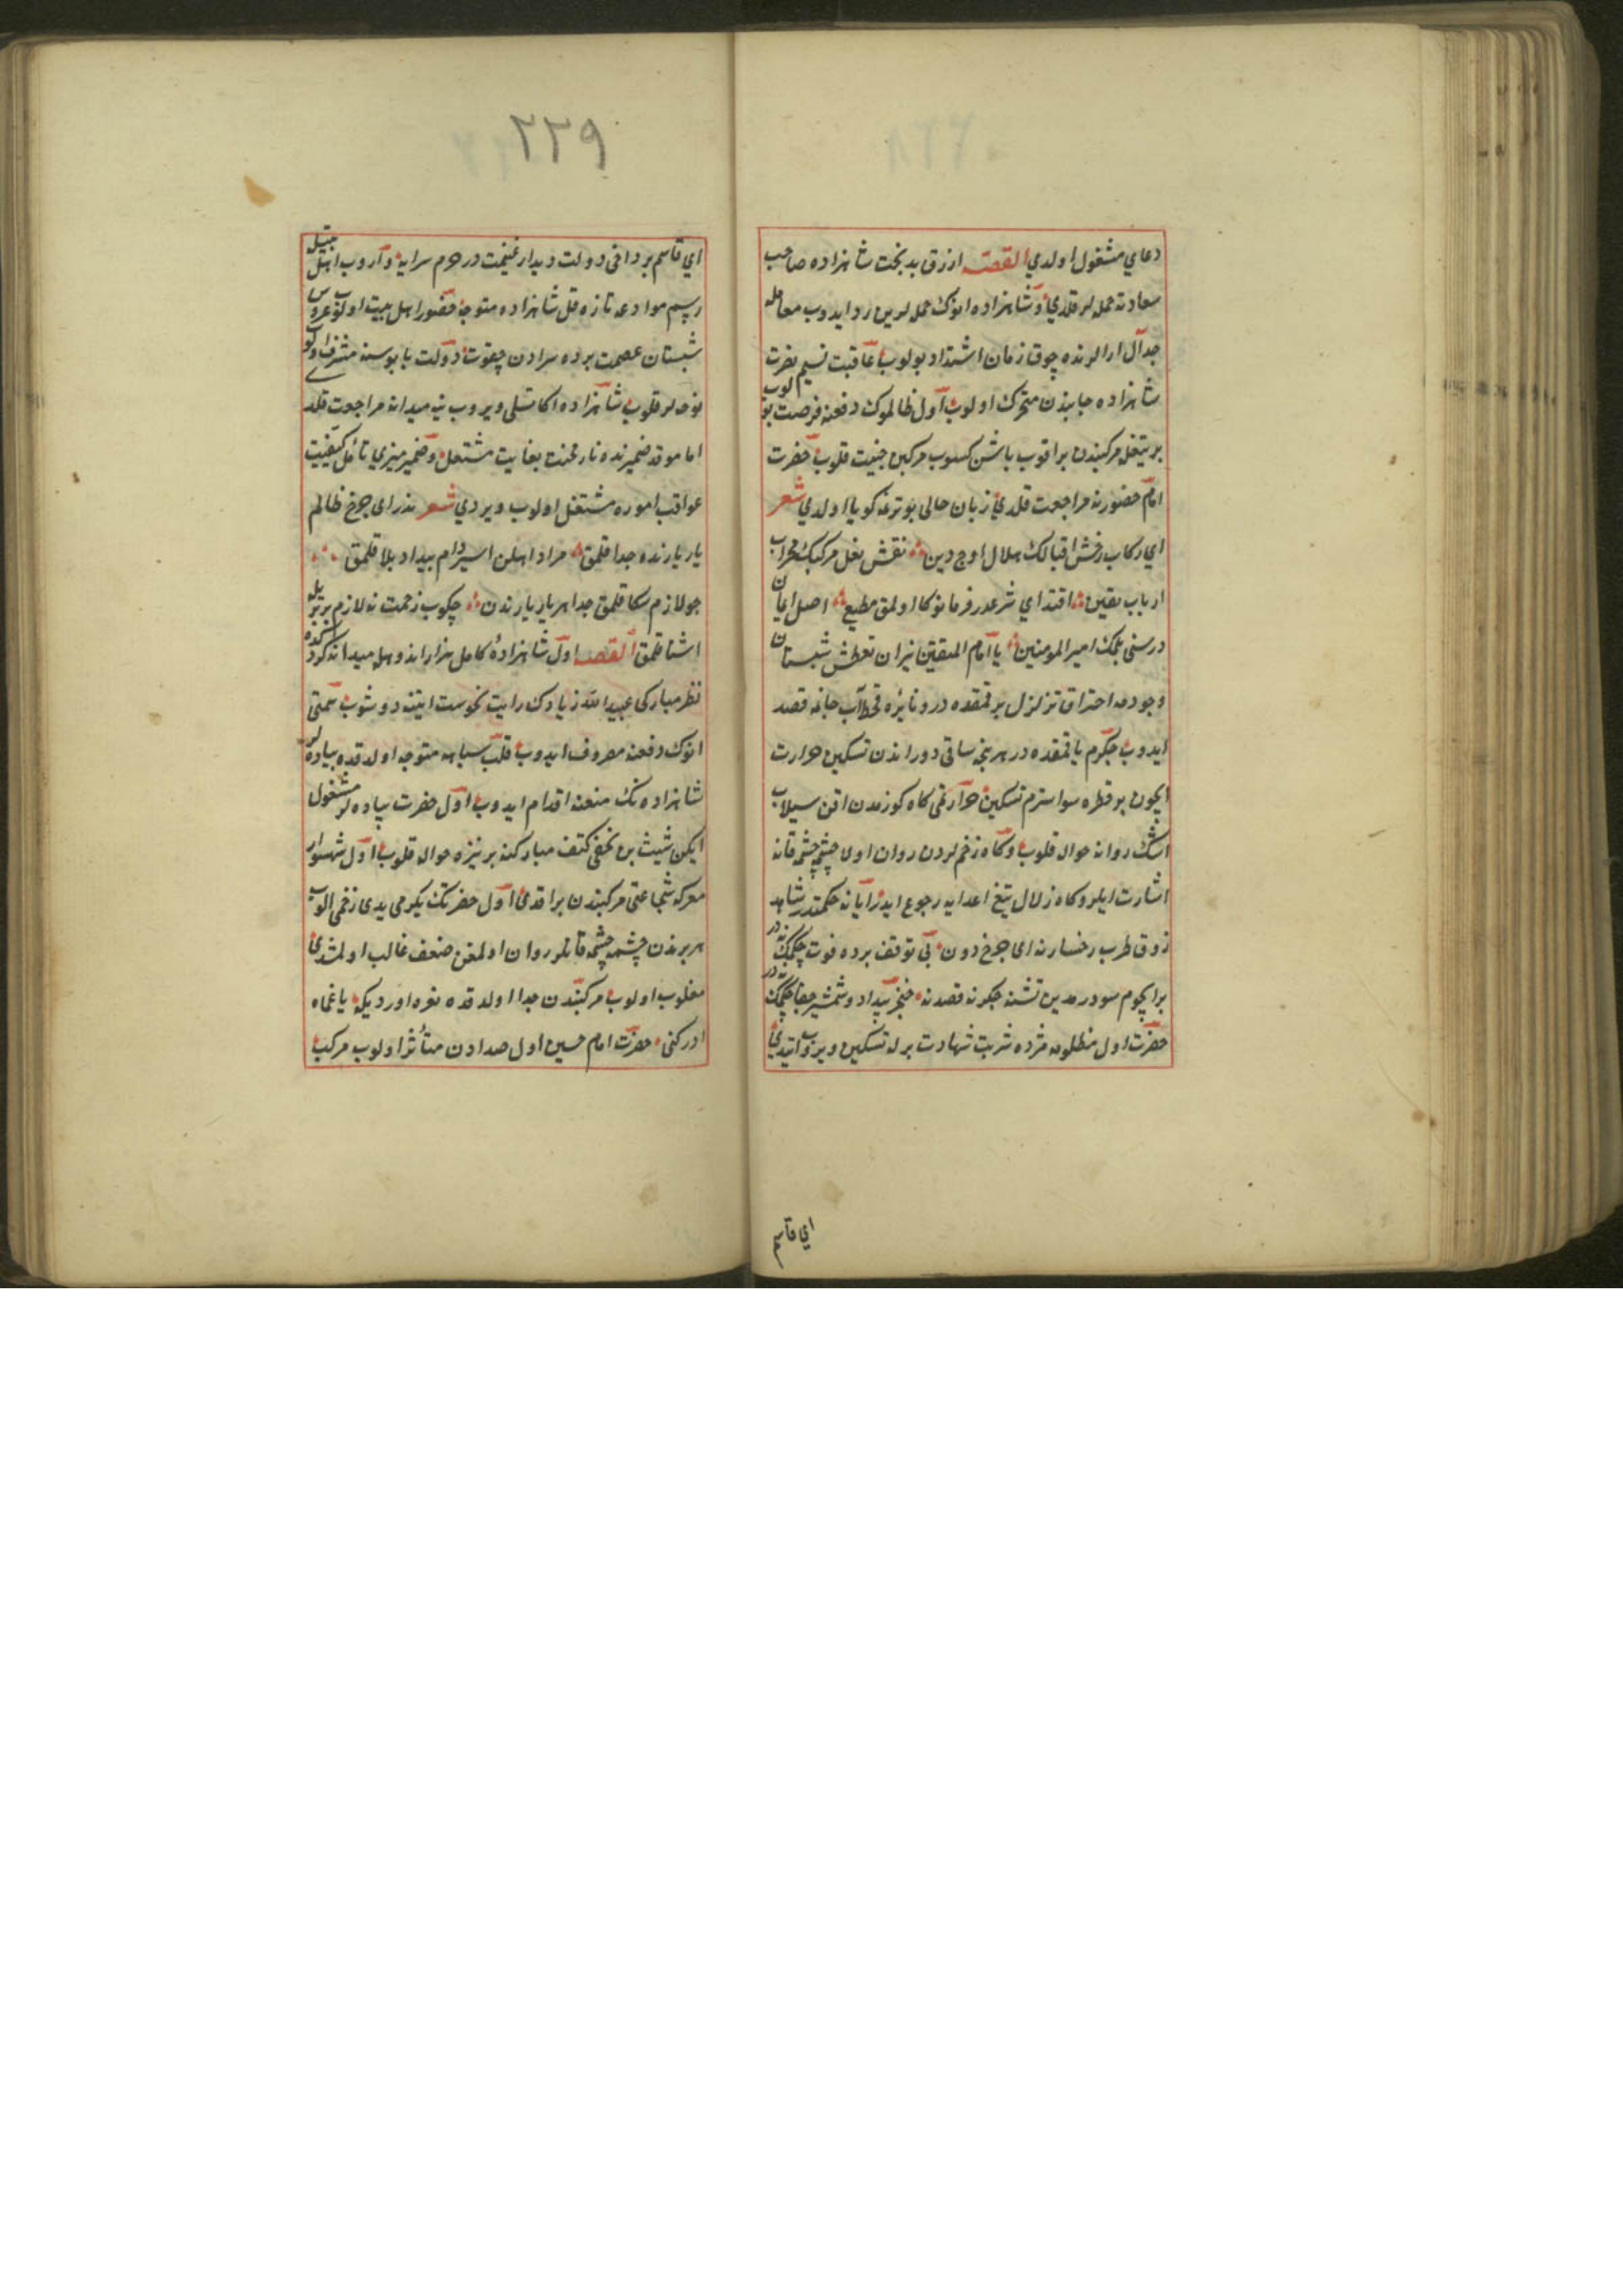 دعاي مشغول اولدي القصه ازرق بدبخت شاهزاده صاحب
سعادته حمله لر قلدي و شاهزاده انوك حمله لرين رد ايدوب معامله
جدال ارالرنده چوق زمان اشتداد بولوب عاقبت نسيم نصرت
شاهزاده جانبندن متحرك اولوب اول ظالموك دفعنه فرصت بولوب
بر تيغله مركبندن براقوب باشن كسوب مركبن جنيبت قلوب حضرت
امام حضورنه مراجعت قلدي زبان حالي بو ترغه كويا اولدي شعر
اي ركاب رخش اقبالك هلال اوج دين نقش نعل مركبك محراب
ارباب يقين اقتداي شرعدر فرمانوكا اولمق مطيع اصل ايمان
درسني بلمك اميرالمومنين يا امام المتقين نيران تعطش شبستان
وجودمه احتراق تزلزل برقمقده در ونائره قحط آب جانمه قصد
ايدوب جكرم ياقمقده در هر نجه ساقي دوراندن تسكين حرارت
ايچون بو قطره سو استرم تسكين حرارتمي كاه كوزمدن اقن سيلاب
اشك روانه حواله قلوب وكاه زخملردن روان اولان چشمه چشمه قانه
اشارت ايلر وكاه زلال تيغ اعدايه رجوع ايدر ايا نه حكمتدر شاهد
ذوق طرب رخسارنه اي چرخ دون بي توقف برده فوت چكمك نه در
بر ايچوم سو درمدين تشنه جكرنه قصدنه خنجر بيداد و شمشير جفا چكمك نه در
حضرت اول مظلومه مژده شربت شهادت برله تسكين ويروب ايتدي
اي قاسم
٢٢٩
اي قاسم بر داخي دولت ديدار غنيمت در حرم سرايه واروب اهل بيتله
رسم موادعه تازه قل شاهزاده متوجه حضور اهل بيت اولوب عروس
شبستان عصمت پرده سرادن چقوت دولت پابوسنه مشرف اولوب
نوحه لر قلوب شاهزاده اكا تسلي ويروب ينه ميدانه مراجعت قلدي
اما موقد ضميرنده نار محنت بغايت مشتعل و ضمير منيري تأمل كيفيت
عواقب اموره مشتغل اولوب ويردي شعر ندر اي چرخ ظالم
يار يارنده جدا قلمق مراد اهلن اسير دام بيداد بلا قلمق
جو لازم سكا قلمق جدا هر يار يارندن چكوب زحمت نه لازم بر بريله
اشنا قلمق القصه اول شاهزاده كامل هزار اندوهله ميدانه كردكده
نظر مباركي عبيد الله زيادك رايت نحوست ايتنه دوشوب همتي
انوك دفعنه مصروف ايدوب قلب سپاهه متوجه اولدقده پياده لر
شاهزاده نك منعنه اقدام ايدوب اول حضرت پياده لر مشغول
ايكن شيث بن نخعي كتف مباركنه بر نيزه حواله قلوب اول شهسوار
معركه شجاعتي مركبندن براقدي اول حضرتك يكرمي يدي زخمي الوب
هر برندن چشمه چشمه قانلر روان اولمغن ضعف غالب اولمشدي
مغلوب اولوب مركبندن جدا اولدقده نعره اورديكه يا عماه
ادركني حضرت امام حسين اول صدادن متأثر اولوب مركب